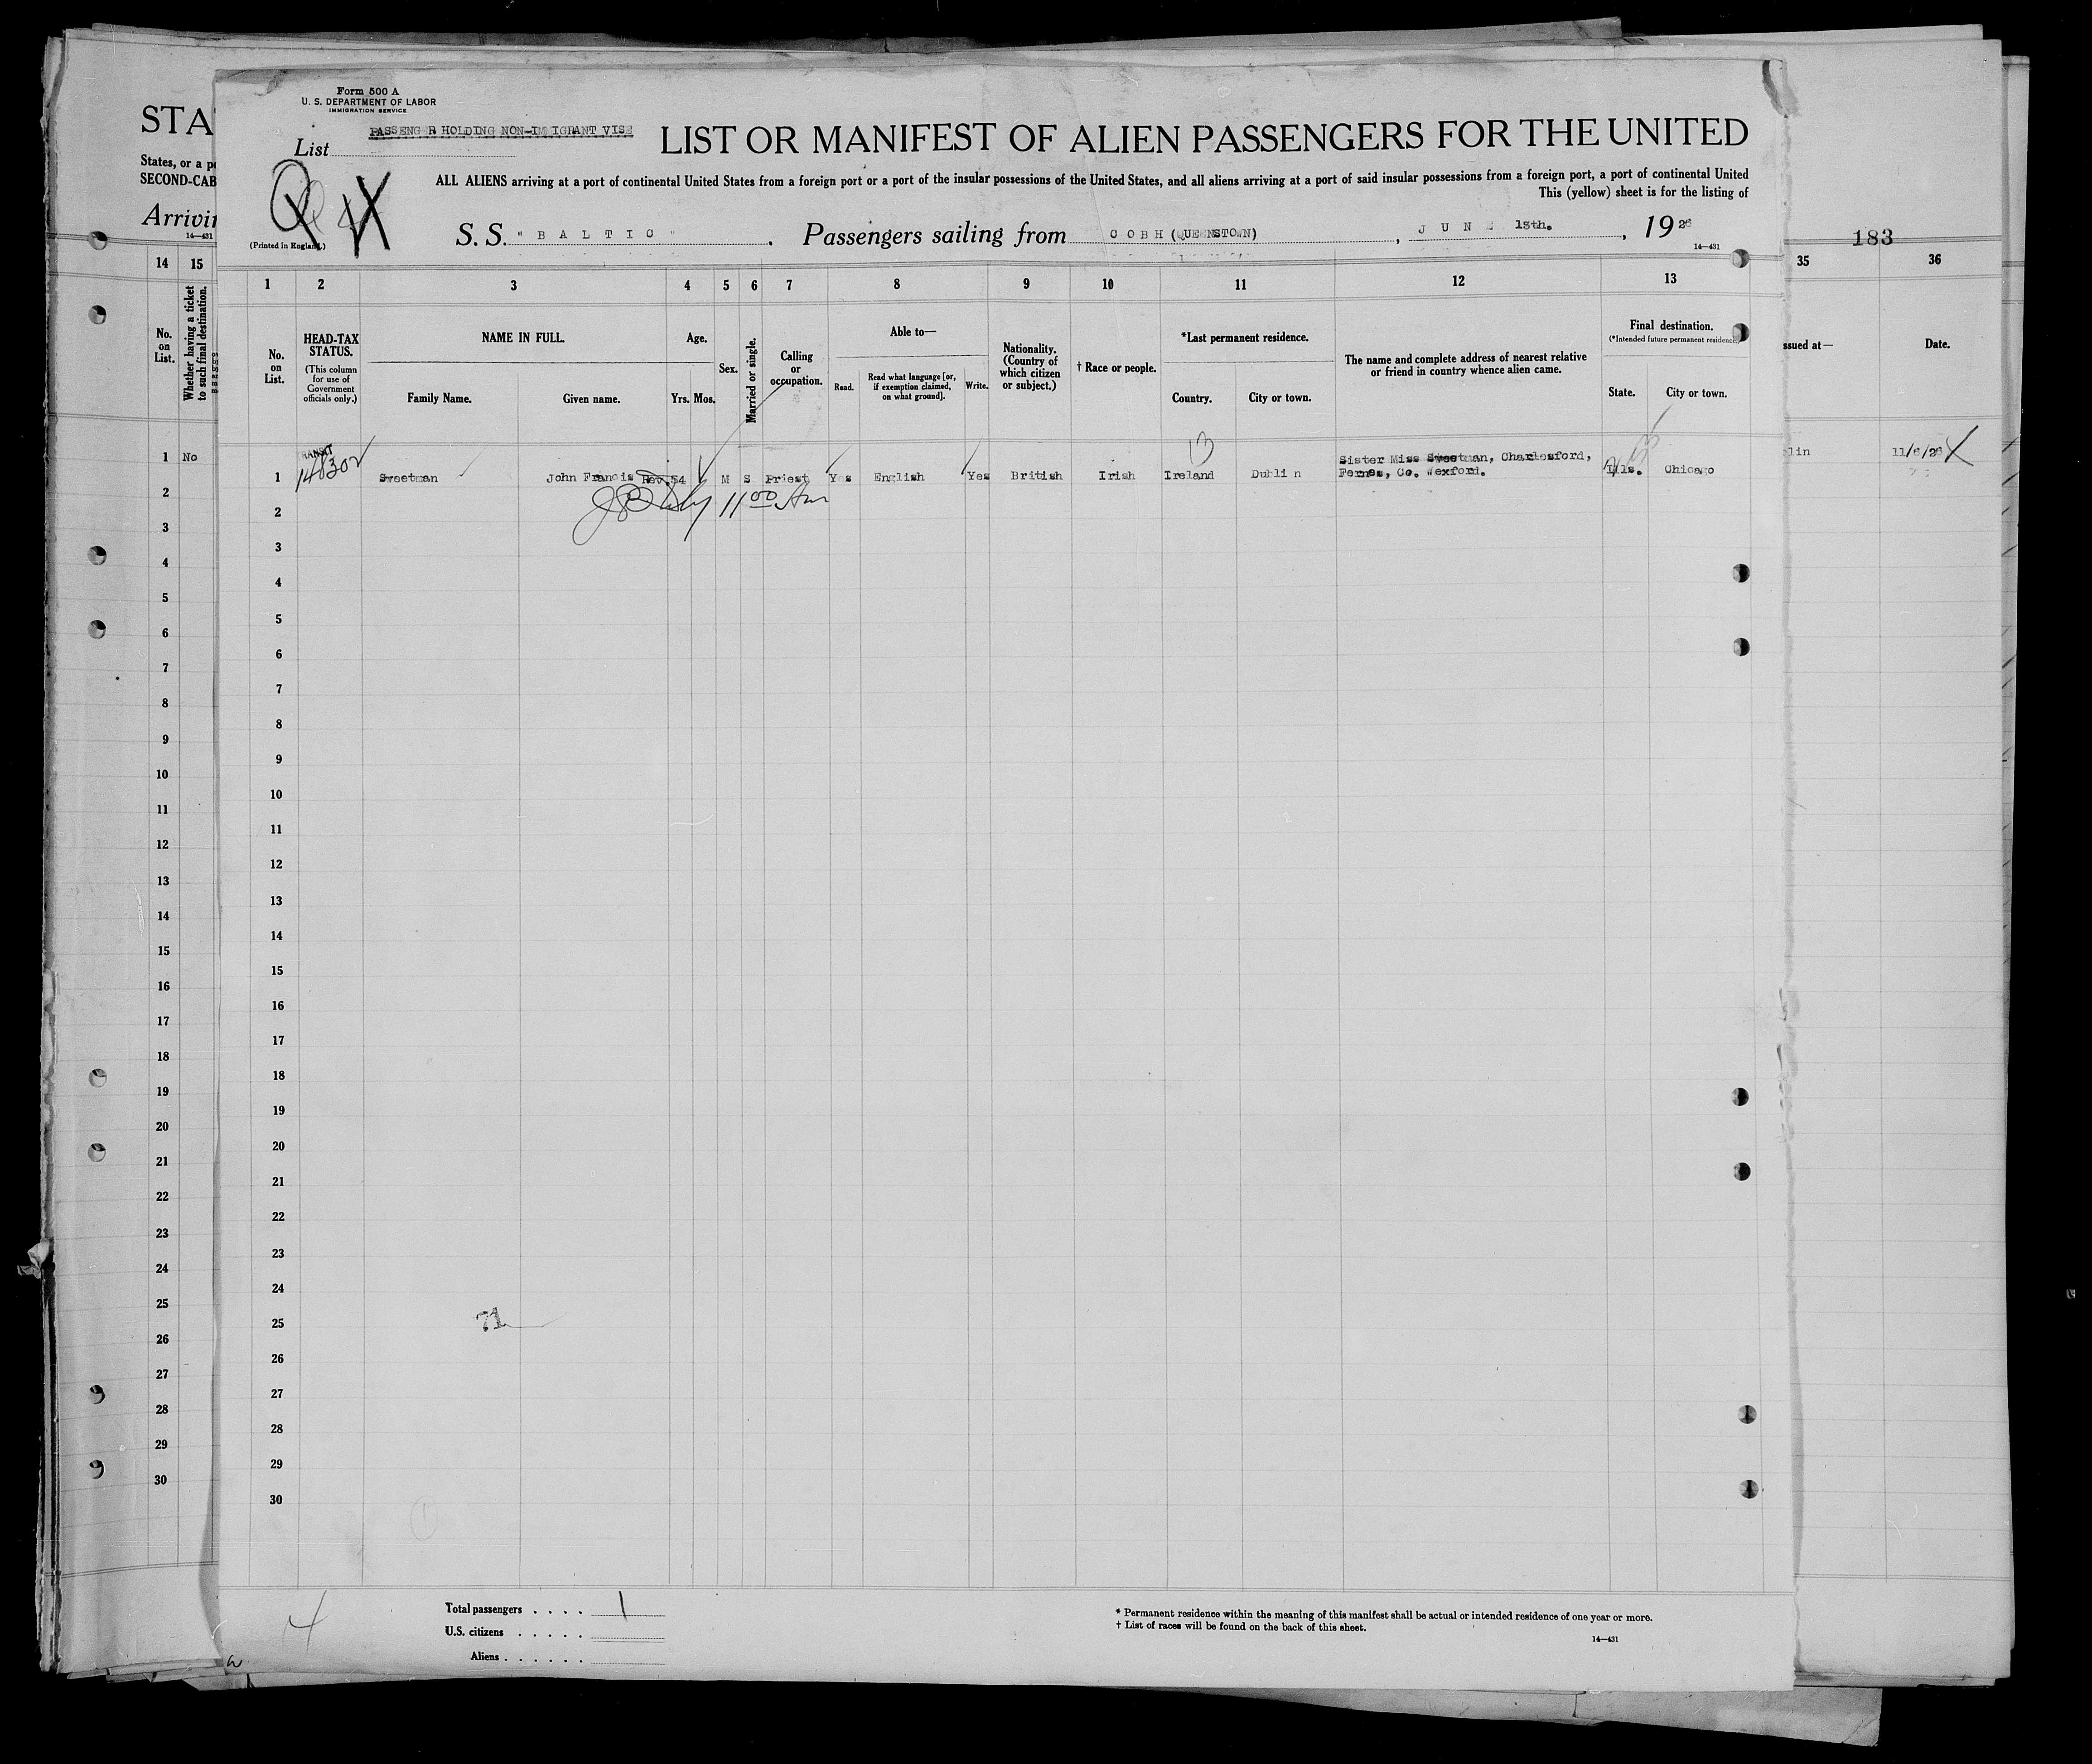 Form 500 A
U. S. DEPARTMENT OF LABOR
IMMIGRATION SERVICE
PASSENG R HOLDING NON-IM IGRANT VISE
List
LIST OR MANIFEST OF ALIEN PASSENGERS FOR THE UNITED
ALL ALIENS arriving at a port of continental United States from a foreign port or a port of the insular possessions of the United States, and all aliens arriving at a port of said insular possessions from a foreign port, a port of continental United
This (yellow) sheet is for the listing of
S. S. " B A L T I C " . Passengers sailing from COBH (QUEENSTOWN) , JUNE 13th. , 1926
(Printed in England.)
14—431
1 2 3 4 5 6 7 8 9 10 11 12 13
No. on List.
HEAD-TAX STATUS.
(This column for use of Government officials only.)
NAME IN FULL.
Family Name. Given name.
Age.
Yrs. Mos.
Sex.
Married or single.
Calling or occupation.
Able to—
Read. Read what language [or, if exemption claimed, on what ground]. Write.
Nationality. (Country of which citizen or subject.)
† Race or people.
*Last permanent residence.
Country. City or town.
The name and complete address of nearest relative or friend in country whence alien came.
Final destination.
(*Intended future permanent residence.)
State. City or town.
13
TRANSIT
1 Sweetman John Francis Rev. 54 M S Priest Yes English Yes British Irish Ireland Dubli n Sister Miss Sweetman, Charlesford, Ills. Chicago
Fernes, Co. Wexford.
11 00 Am
2
3
4
5
6
7
8
9
10
11
12
13
14
15
16
17
18
19
20
21
22
23
24
25
26
27
28
29
30
71
Total passengers . . . . 1
U.S. citizens . . . . .
Aliens . . . . . .
* Permanent residence within the meaning of this manifest shall be actual or intended residence of one year or more.
† List of races will be found on the back of this sheet.
14—431
STA
States, or a po
SECOND-CAB
Arrivin
14—431
14 15
No. on List.
Whether having a ticket to such final destination.
1 No
2
3
4
5
6
7
8
9
10
11
12
13
14
15
16
17
18
19
20
21
22
23
24
25
26
27
28
29
30
183
35 36
ssued at— Date.
lin 11/6/26